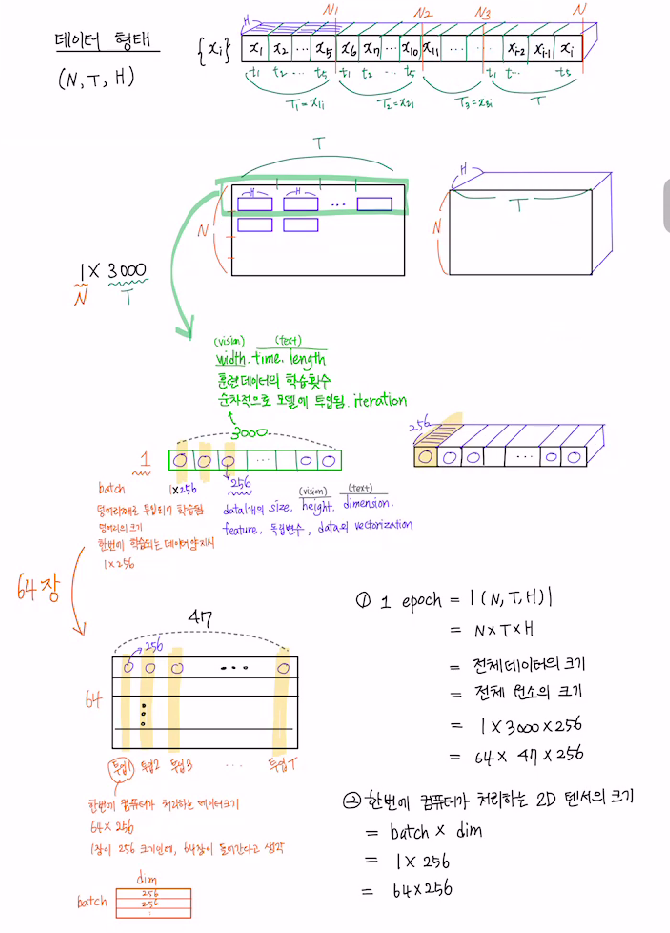 데이터 형태
(N, T, H)
H N₁ N₂ N₃ N
{xᵢ} x₁ x₂ ... x₅ x₆ x₇ ... x₁₀ x₁₁ ... xᵢ₋₂ xᵢ₋₁ xᵢ
t₁ t₂ ... t₅ t₁ t₂ ... t₅ t₁ t... t₅
T₁ = x₁ᵢ T₂ = x₂ᵢ T₃ = x₃ᵢ T
T
H H ...
N
H
T
N
1 X 3000
N T
(vision) (text)
width. time. length
훈련 데이터의 학습횟수
순차적으로 모델에 투입됨. iteration
3000
1 ...
256
...
batch 1x256 256
덩어리째로 투입되어 학습됨
덩어리의크기
한번에 학습되는 데이터양지시
1 x 256
(vision) (text)
data 1개의 size. height. dimension.
feature, 독립변수, data의 vectorization
64장
47
256
...
64
투입1 투입2 투입3 ... 투입T
한번에 컴퓨터가 처리하는 데이터크기
64 x 256
1장이 256 크기인데, 64장이 들어간다고 생각
dim
batch 256
256
① 1 epoch = |(N, T, H)|
= N x T x H
= 전체데이터의 크기
= 전체 원소의 크기
= 1 x 3000 x 256
= 64 x 47 x 256
② 한번에 컴퓨터가 처리하는 2D 텐서의 크기
= batch x dim
= 1 x 256
= 64 x 256